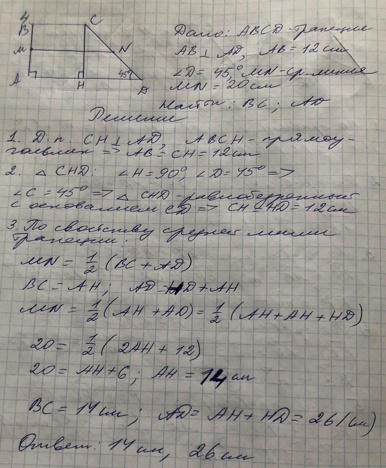 4
B C
M N
A H 45° D
Дано: ABCD-трапеция
AB⊥AD, AB=12см
∠D=45°, MN-ср.линия
MN=20см
Найти: BC; AD
Решение
1. Д.п. CH⊥AD, ABCH-прямоу-
гольник => AB=CH=12см
2. △CHD: ∠H=90°, ∠D=45° =>
∠C=45° => △CHD-равнобедренный
с основанием CD => CH=HD=12см
3. По свойству средней линии
трапеции:
MN=½(BC+AD)
BC=AH; AD=HD+AH
MN=½(AH+AD)=½(AH+AH+HD)
20=½(2AH+12)
20=AH+6; AH=14см
BC=14см; AD=AH+HD=26(см)
Ответ: 14см, 26см